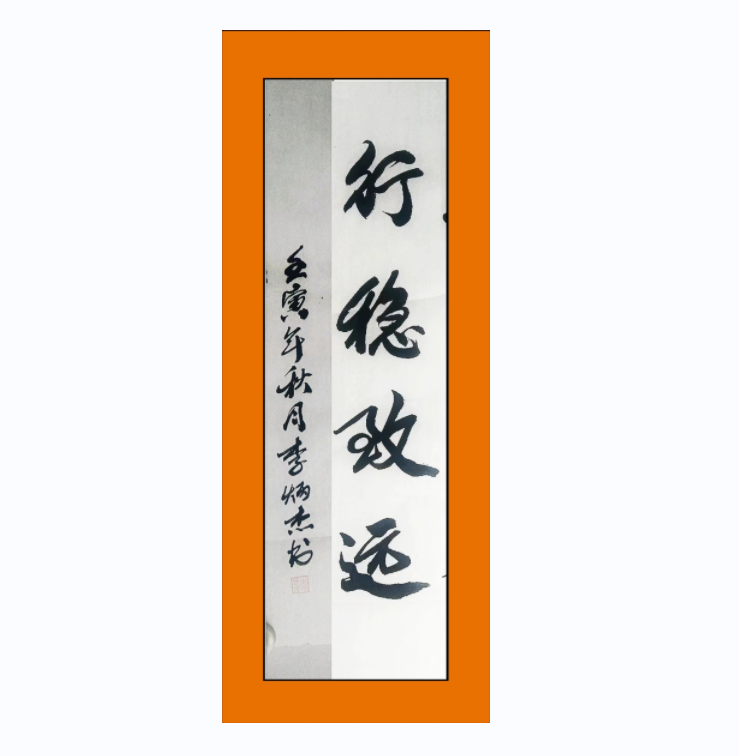 行稳致远
壬寅年秋月李炳杰书